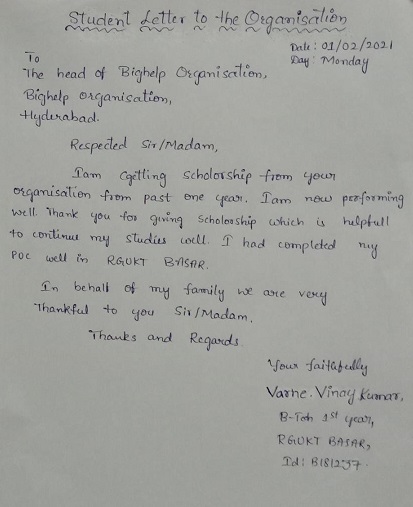 Student Letter to the Organisation
Date: 01/02/2021
Day: Monday
To
The head of Bighelp Organisation,
Bighelp organisation,
Hyderabad.
Respected Sir/Madam,
Iam Cgetting scholorship from your
organisation from past one year. Iam now performing
well. Thank you for giving Scholorship which is helpfull
to continue my studies well. I had completed my
POC well in RGUKT BASAR.
In behalf of my family we are very
Thankful to you Sir/Madam.
Thanks and Regards
Your faithfully
Varne. Vinay Kumar,
B-Tech 1st year,
RGUKT BASAR,
Id: